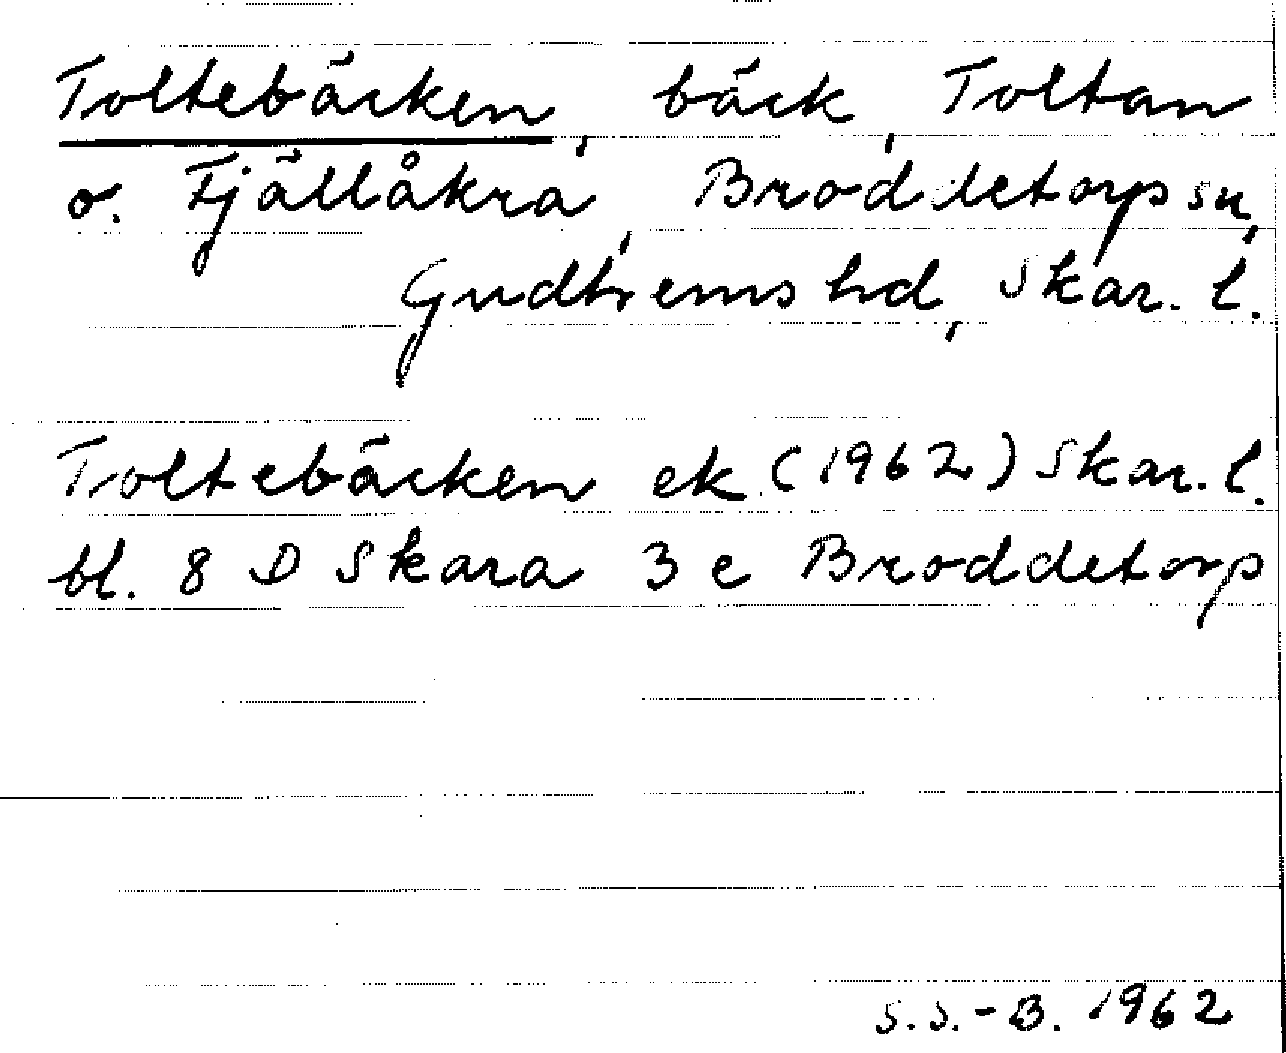 Toltebäcken, bäck, Toltan
o. Fjällåkra, Broddetorp sn,
Gudhems hd, Skar. l.
Toltebäcken ek (1962) Skar. l.
bl. 8 D Skara 3 e Broddetorp
S.S.-B. 1962